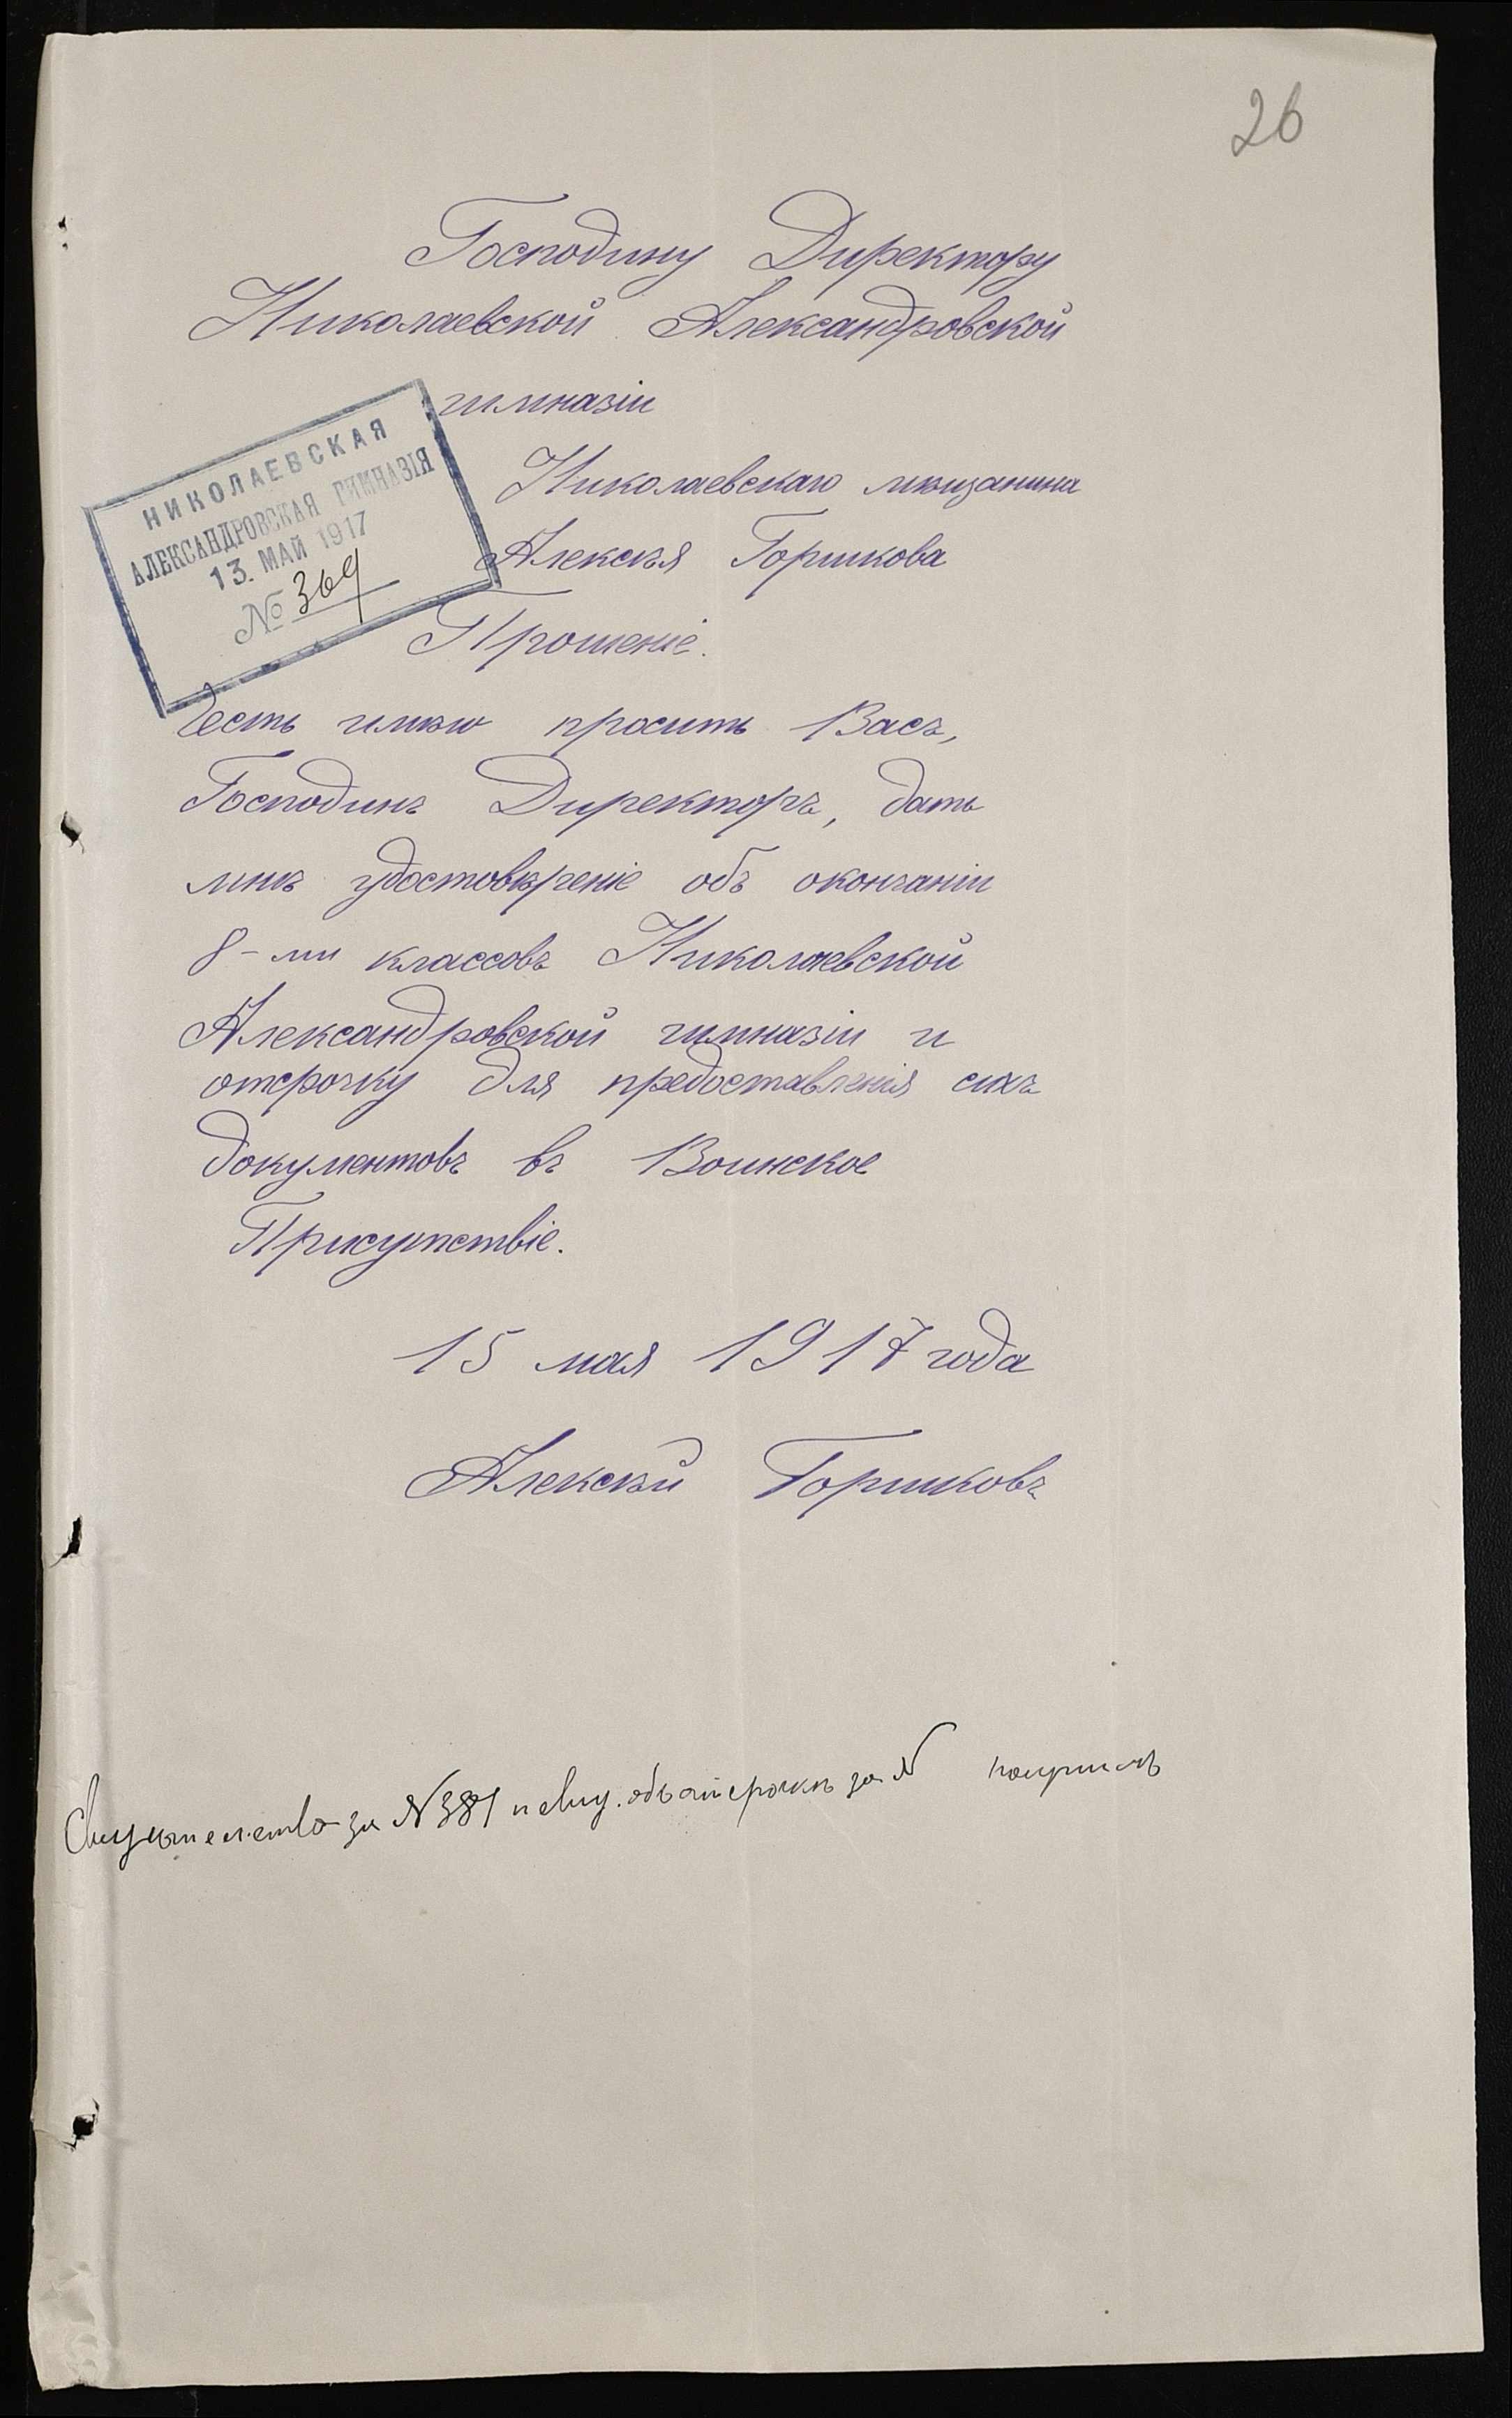 26
Господину Директору
Николаевской Александровской
гимназіи
НИКОЛАЕВСКАЯ
АЛЕКСАНДРОВСКАЯ ГИМНАЗІЯ
13. МАЙ 1917
№ 369
Николаевскаго мѣщанина
Алексѣя Горшкова
Прошеніе.
Честь имѣю просить Васъ,
Господинъ Директоръ, дать
мнѣ удостовѣреніе объ окончаніи
8-ми классовъ Николаевской
Александровской гимназіи и
отсрочку для предоставленія сихъ
документовъ въ Воинское
Присутствіе.
15 мая 1917 года
Алексѣй Горшковъ
Свидѣтельство за № 381 и объ отсрочкѣ за № получилъ